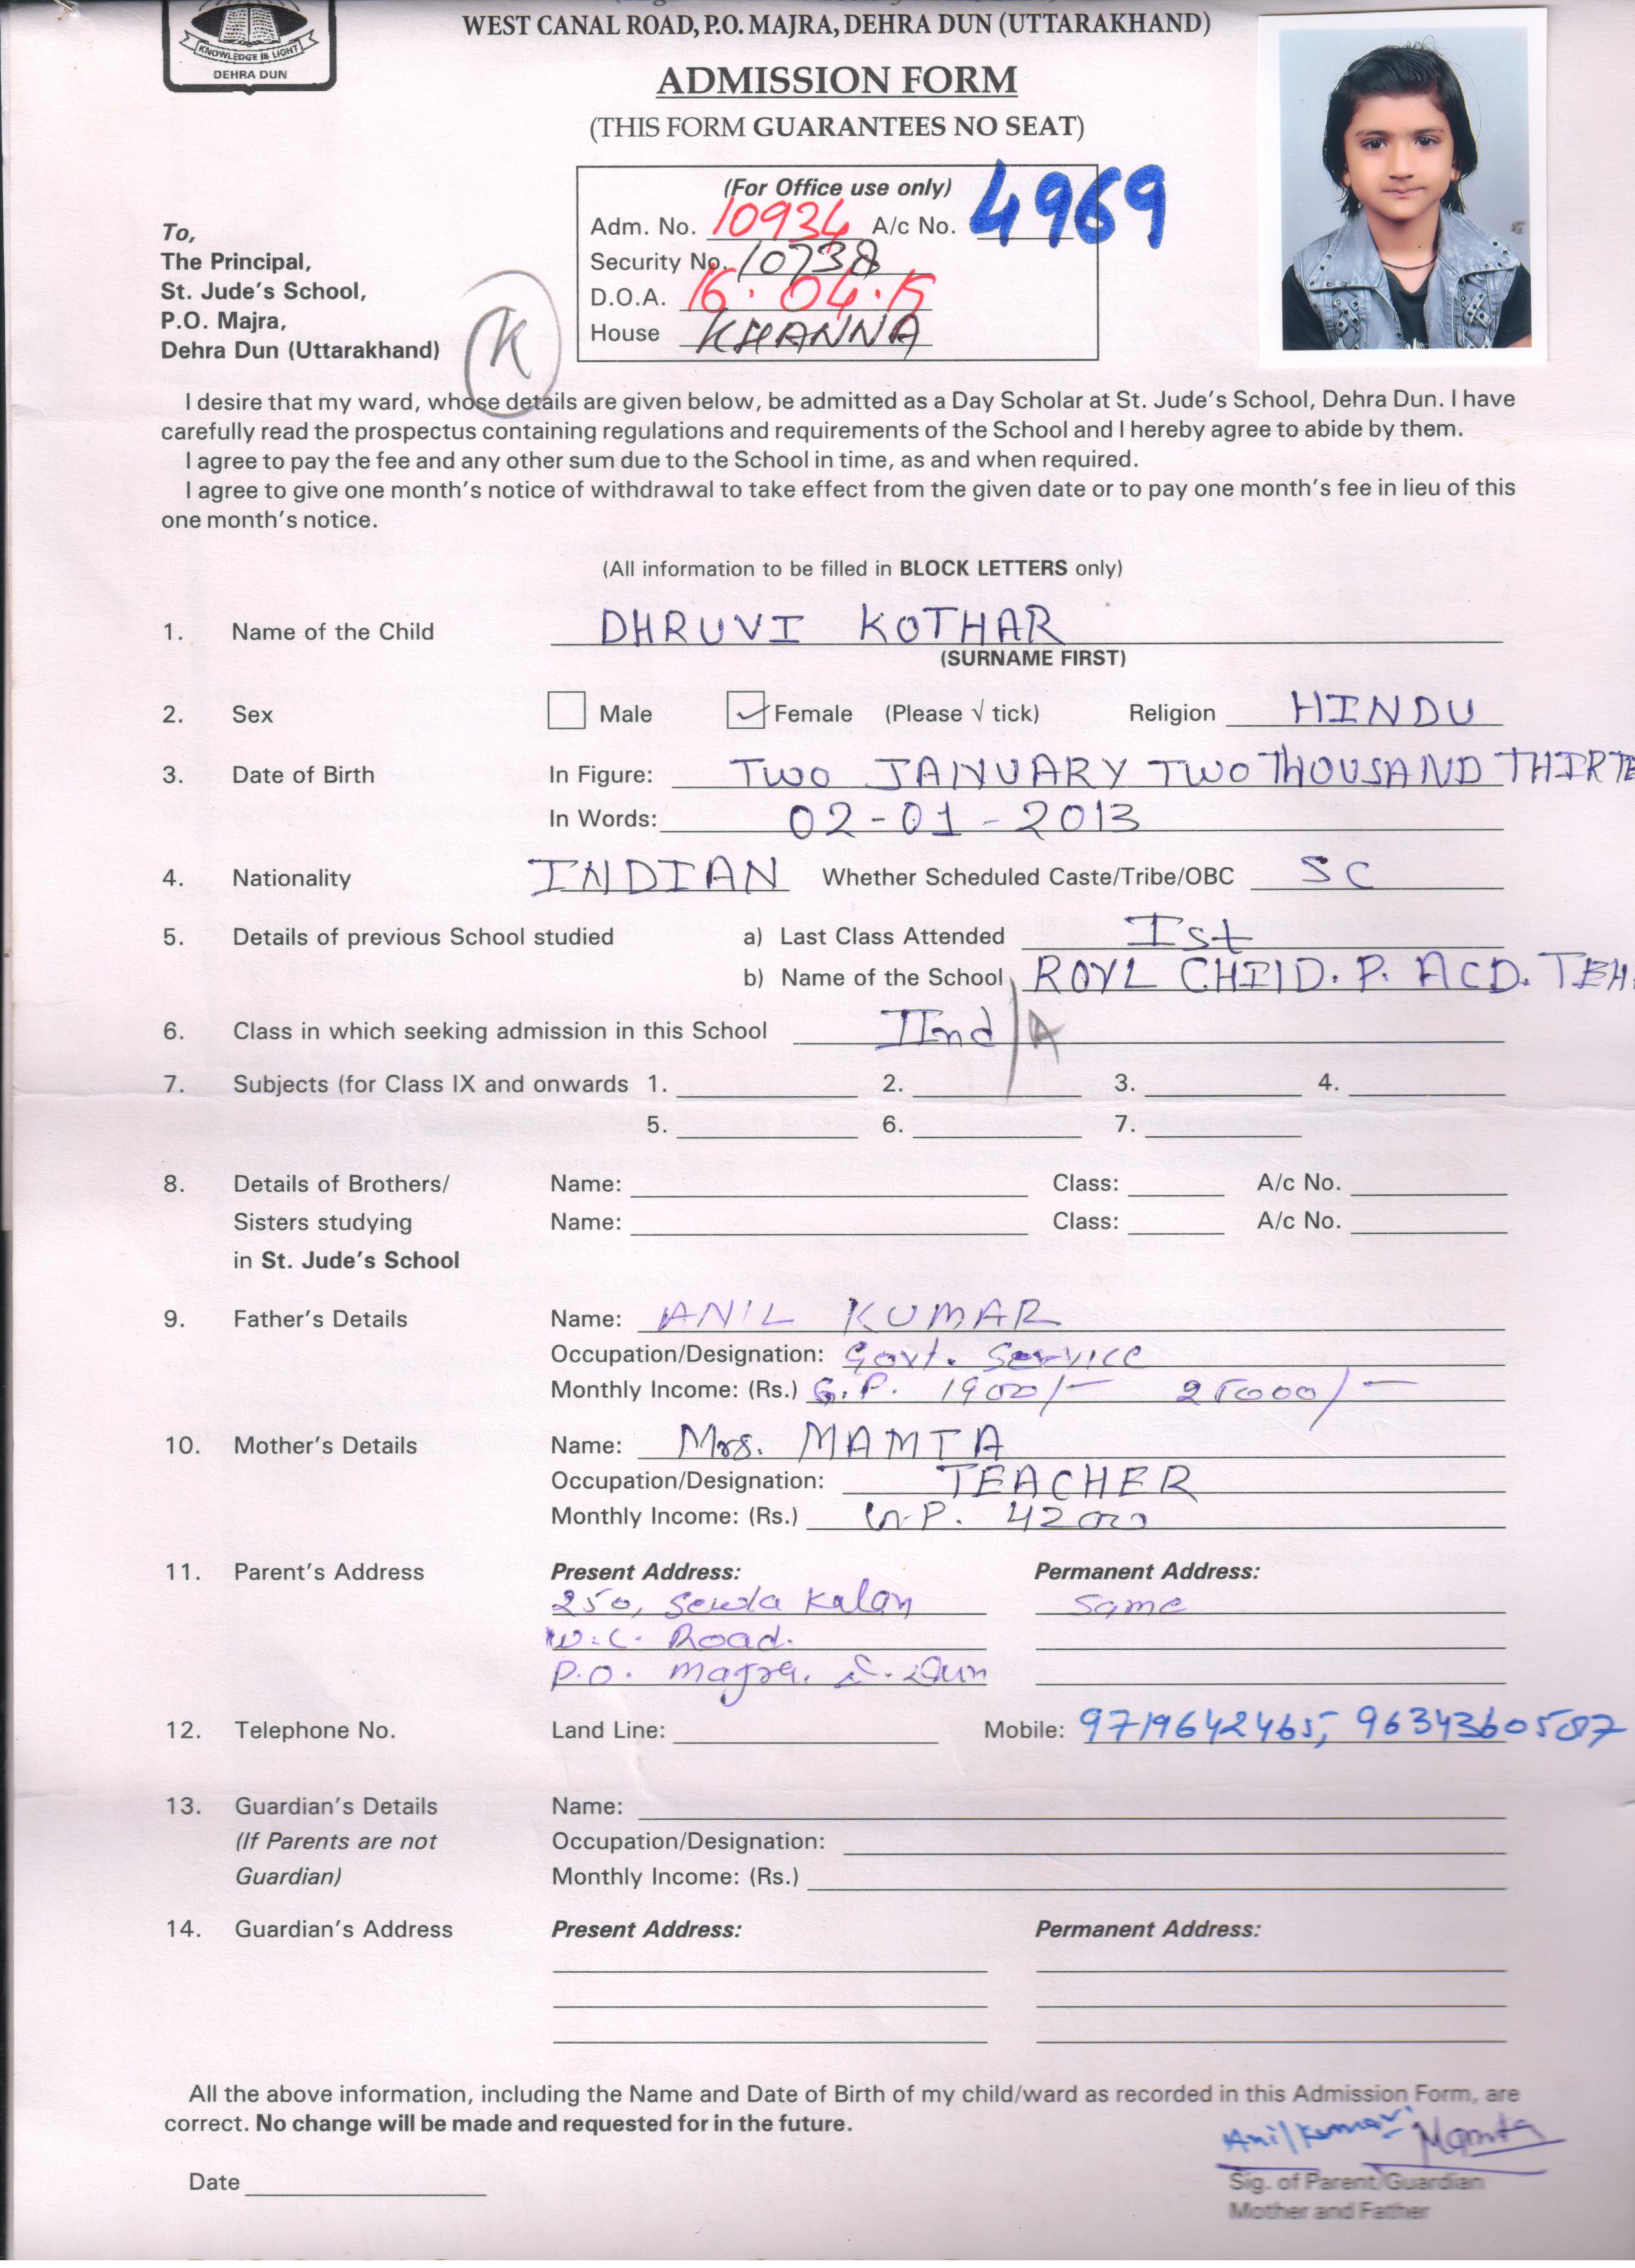 WEST CANAL ROAD, P.O. MAJRA, DEHRA DUN (UTTARAKHAND)
KNOWLEDGE IS LIGHT
DEHRA DUN
ADMISSION FORM
(THIS FORM GUARANTEES NO SEAT)
(For Office use only)
Adm. No. 10934 A/c No. 4969
Security No. 10738
D.O.A. 16.04.
House KHANNA
To,
The Principal,
St. Jude's School,
P.O. Majra,
Dehra Dun (Uttarakhand)
K
I desire that my ward, whose details are given below, be admitted as a Day Scholar at St. Jude's School, Dehra Dun. I have
carefully read the prospectus containing regulations and requirements of the School and I hereby agree to abide by them.
I agree to pay the fee and any other sum due to the School in time, as and when required.
I agree to give one month's notice of withdrawal to take effect from the given date or to pay one month's fee in lieu of this
one month's notice.
(All information to be filled in BLOCK LETTERS only)
1. Name of the Child DHRUVI KOTHAR
(SURNAME FIRST)
2. Sex Male Female (Please √ tick) Religion HINDU
3. Date of Birth In Figure: TWO JANUARY TWO THOUSAND THIRTE
In Words: 02-01-2013
4. Nationality INDIAN Whether Scheduled Caste/Tribe/OBC SC
5. Details of previous School studied a) Last Class Attended Ist
b) Name of the School ROYL CHIID. P. ACD. TEH.
6. Class in which seeking admission in this School IInd/A
7. Subjects (for Class IX and onwards 1. 2. 3. 4.
5. 6. 7.
8. Details of Brothers/ Name: Class: A/c No.
Sisters studying Name: Class: A/c No.
in St. Jude's School
9. Father's Details Name: ANIL KUMAR
Occupation/Designation: Govt. Service
Monthly Income: (Rs.) G.P. 1900/- 25000/-
10. Mother's Details Name: Mrs. MAMTA
Occupation/Designation: TEACHER
Monthly Income: (Rs.) G.P. 4200
11. Parent's Address Present Address: Permanent Address:
250, Sewla Kalan Same
W.C. Road.
P.O. Majra. D. Dun
12. Telephone No. Land Line: Mobile: 9719642465, 9634360587
13. Guardian's Details Name:
(If Parents are not Occupation/Designation:
Guardian) Monthly Income: (Rs.)
14. Guardian's Address Present Address: Permanent Address:
All the above information, including the Name and Date of Birth of my child/ward as recorded in this Admission Form, are
correct. No change will be made and requested for in the future.
Anil Kumar Mamta
Date
Sig. of Parent/Guardian
Mother and Father